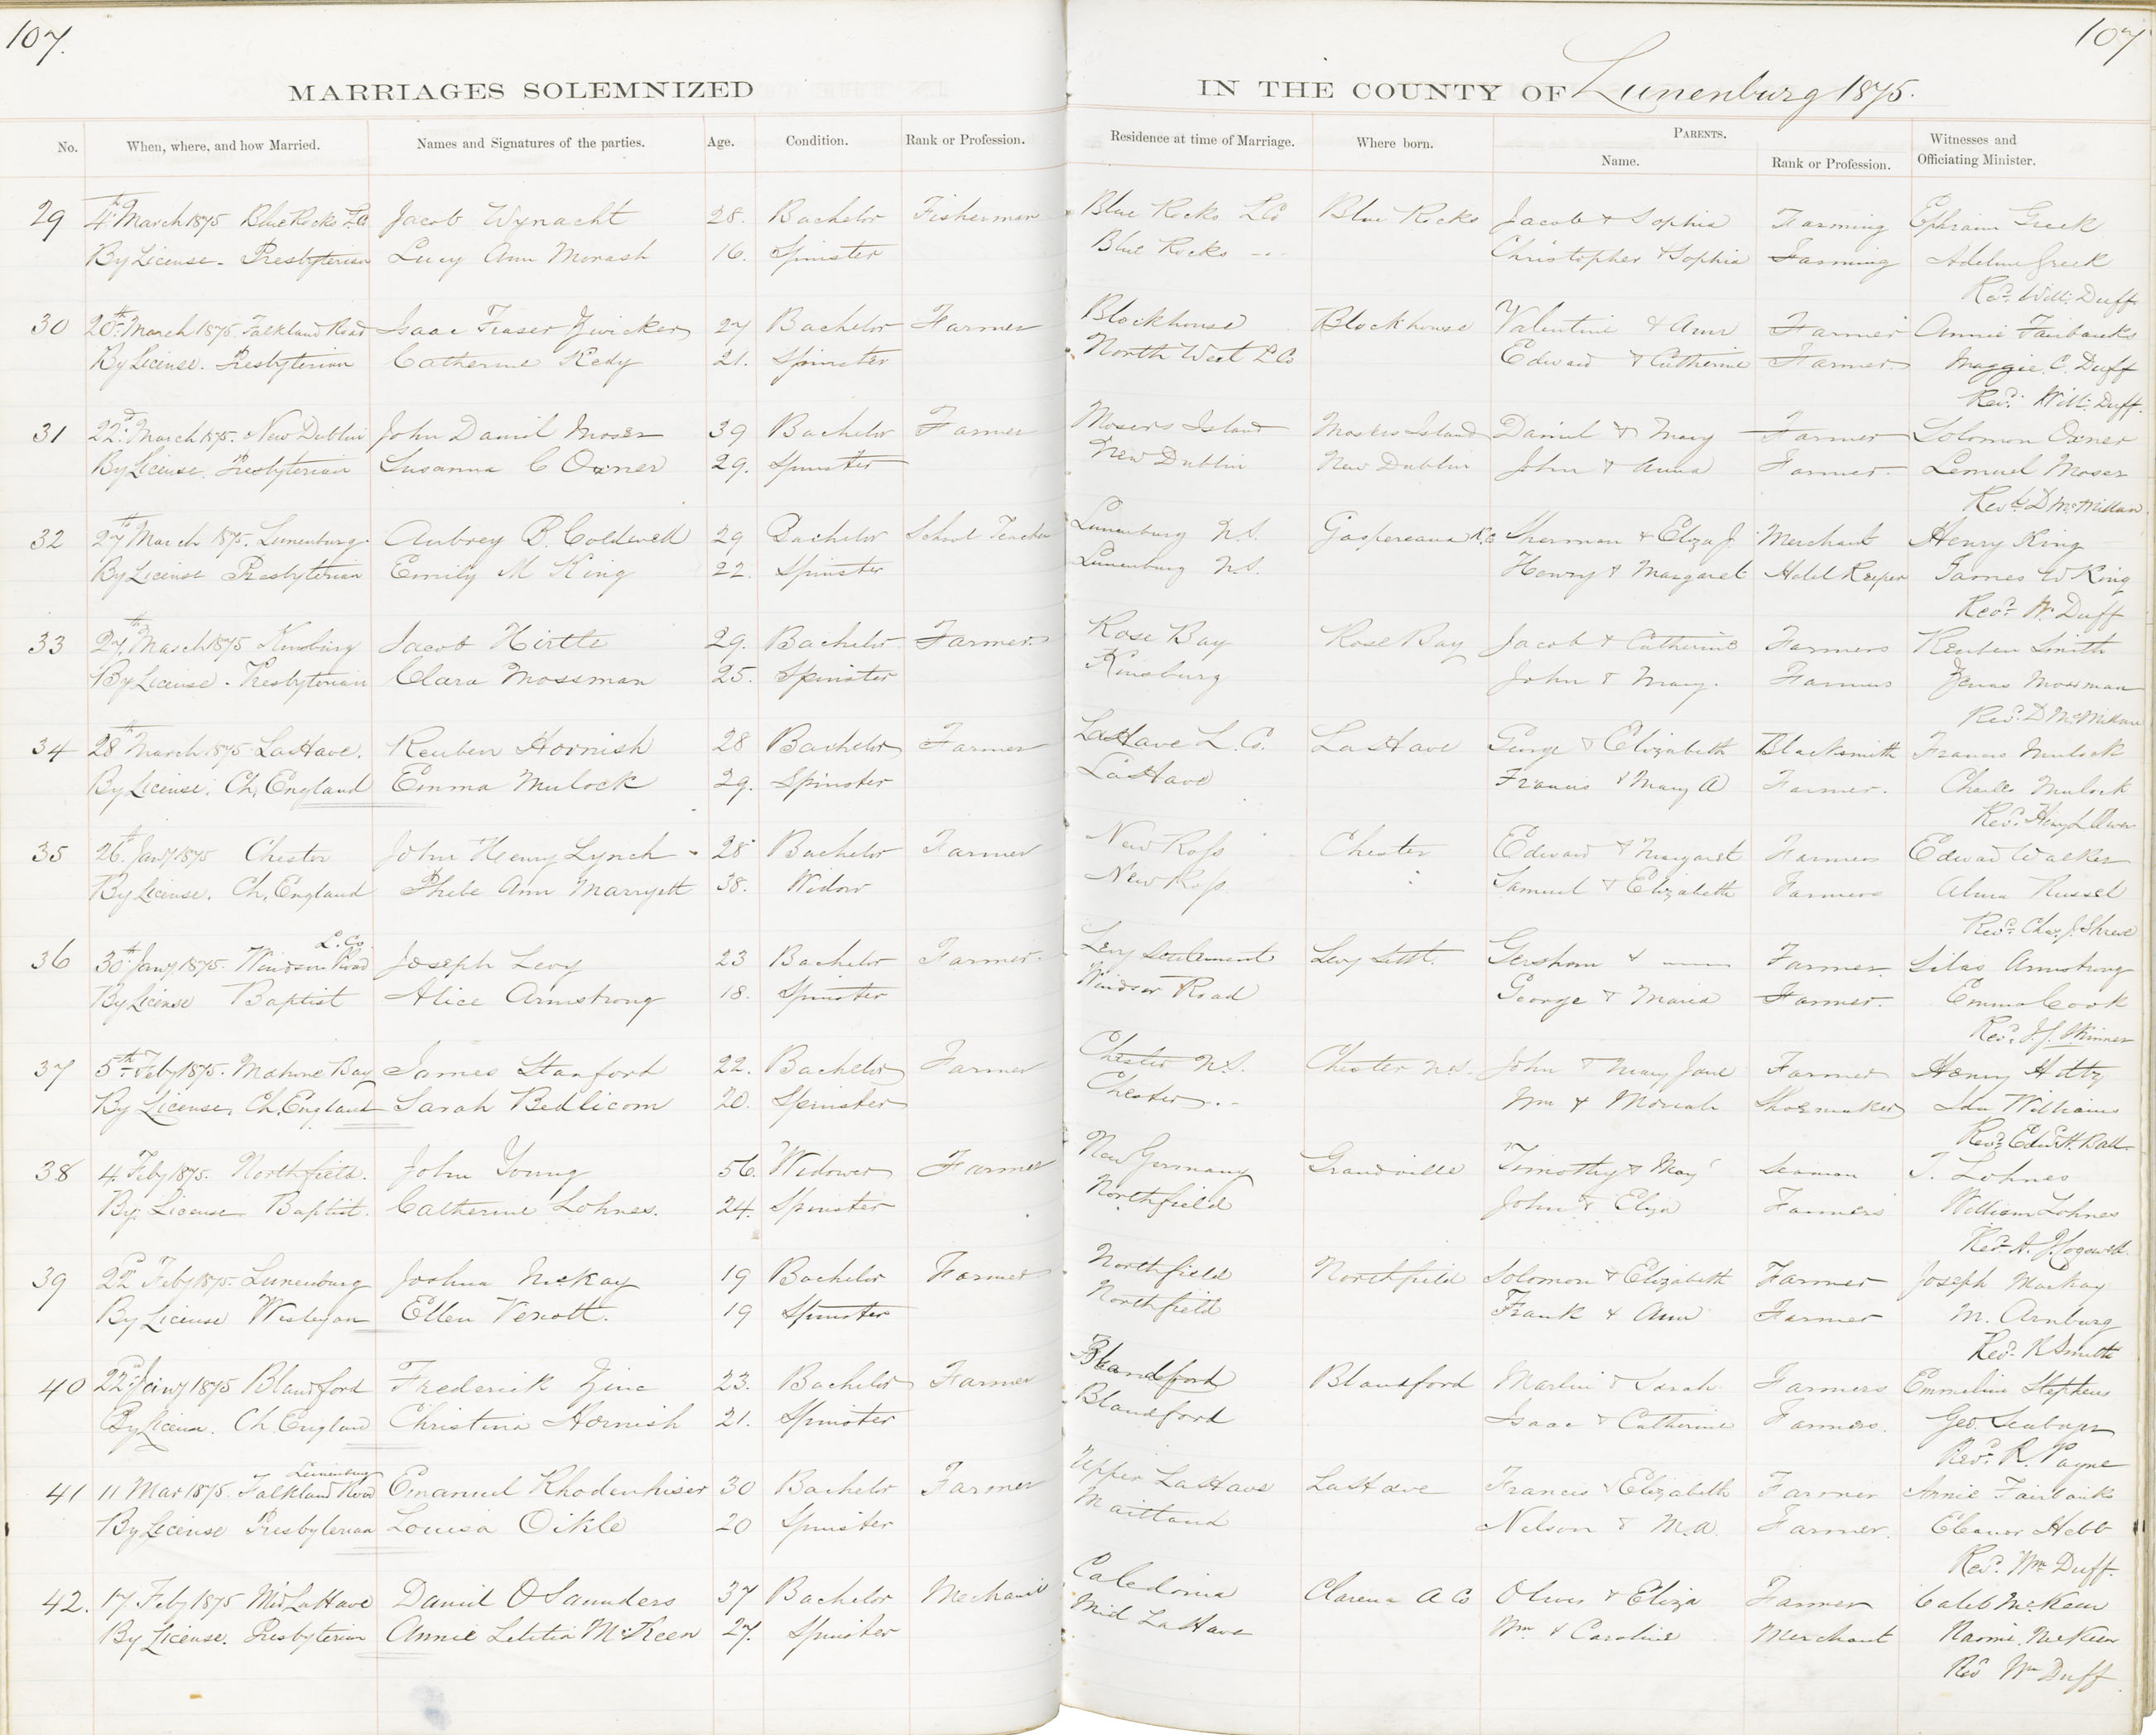 107.
107
MARRIAGES SOLEMNIZED IN THE COUNTY OF Lunenburg 1875.
No. When, where, and how Married. Names and Signatures of the parties. Age. Condition. Rank or Profession. Residence at time of Marriage. Where born. PARENTS. Name. Rank or Profession. Witnesses and Officiating Minister.
29 4th March 1875 Blue Rocks L.Co Jacob Wynacht 28. Bachelor Fisherman Blue Rocks LCo Blue Rocks Jacob & Sophia Farming Ephraim Greek
By License - Presbyterian Lucy Ann Morash 16. Spinster Blue Rocks Christopher & Sophia Farming Adeline Greek
Revd. Willm. Duff
30 20th March 1875 Falkland Road Isaac Fraser Zwicker 27 Bachelor Farmer Blockhouse Blockhouse Valentine & Ann Farmer Annie Fairbanks
By License. Presbyterian Catherine Kedy 21. Spinster North West LCo Edward & Catherine Farmer. Maggie. C. Duff
Revd. Willm. Duff.
31 22d. March 1875. New Dublin John Daniel Moser 39 Bachelor Farmer Mosers Island Mosers Island Daniel & Mary Farmer Solomon Oxner
By License. Presbyterian Susanna C Oxner 29. Spinster New Dublin New Dublin John & Anna Farmer. Lemuel Moser
Revd. D McMillan
32 27th March 1875. Lunenburg. Aubrey B. Coldwell 29 Bachelor School Teacher Lunenburg N.S. Gaspereaux K.C Sherman & Eliza J. Merchant Henry King
By License Presbyterian Emily M King 22. Spinster Lunenburg N.S. Henry & Margaret Hotel Keeper James W King
Revd. W. Duff
33 27th March 1875 Kinsburg Jacob Hirtle 29. Bachelor Farmer. Rose Bay Rose Bay Jacob & Catherine Farmers Reuben Smith
By License. Presbyterian Clara Mossman 25. Spinster Kinsburg John & Mary. Farmers Zenas Mossman
Revd. D McMillan
34 28th March 1875 LaHave. Reuben Hornish 28 Bachelor Farmer LaHave L.Co. LaHave George & Elizabeth Blacksmith Francis Mulock
By License. Ch. England Emma Mulock 29. Spinster LaHave Francis & Mary A Farmer. Charles Mulock
Revd. Henry L Owen
35 26th. Jany 1875 Chester John Henry Lynch 28 Bachelor Farmer New Ross Chester Edward & Margaret Farmers Edward Walker
By License. Ch. England Phebe Ann Marryett 38. Widow New Ross Samuel & Elizabeth Farmers Alma Russel
Revd. Chas. J. Shreve
L.Co.
36 30th Jany 1875. Windsor Road Joseph Levy 23 Bachelor Farmer. Levy Settlement Levy Settt. Gershom & —— Farmer Silas Armstrong
By License Baptist Alice Armstrong 18. Spinster Windsor Road George & Maria Farmer. Emma Cook
Revd. J.J. Skinner
37 5th Feby 1875. Mahone Bay James Stanford 22. Bachelor Farmer Chester N.S. Chester N.S. John & Mary Jane Farmer Henry Hilty
By License, Ch. England Sarah Bedlicom 20. Spinster Chester Wm & Moriah Shoemaker Ida Williams
Revd. Edwd. H. Ball
38 4. Feby 1875. Northfield. John Young 56. Widower Farmer New Germany Grandville Timothy & May Seaman T. Lohnes
By License Baptist. Catherine Lohnes. 24. Spinster Northfield John & Eliza Farmers William Lohnes
Revd. A. J. Cogswell.
39 22d Feby 1875. Lunenburg Joshua McKay 19 Bachelor Farmer Northfield Northfield Solomon & Elizabeth Farmer Joseph Mackay
By License Wesleyan Ellen Veinott. 19 Spinster Northfield Frank & Ann Farmer M. Arnburg
Revd. R Smith
40 22d Jany 1875 Blandford Frederick Zinc 23. Bachelor Farmer Blandford Blandford Martin & Sarah Farmers Emmeline Stephens
By License. Ch. England Christina Hornish 21. Spinster Blandford Isaac & Catherine Farmers. Geo. Seaboyer
Revd. R. Payne
Lunenburg
41 11 Mar 1875. Falkland Road Emanuel Rhodenhiser 30 Bachelor Farmer Upper LaHave LaHave Francis & Elizabeth Farmer Annie Fairbanks
By License Presbyterian Louisa Oikle 20 Spinster Maitland Nelson & M.A. Farmer. Eleanor Hebb
Revd. Wm Duff.
42. 17 Feby 1875 Mid LaHave Daniel O Saunders 37 Bachelor Mechanic Caledonia Clarence A Co Oliver & Eliza Farmer Caleb McKeen
By License. Presbyterian Annie Letitia McKeen 27. Spinster Mid LaHave Wm & Caroline Merchant Naomi McKeen
Revd Wm Duff.